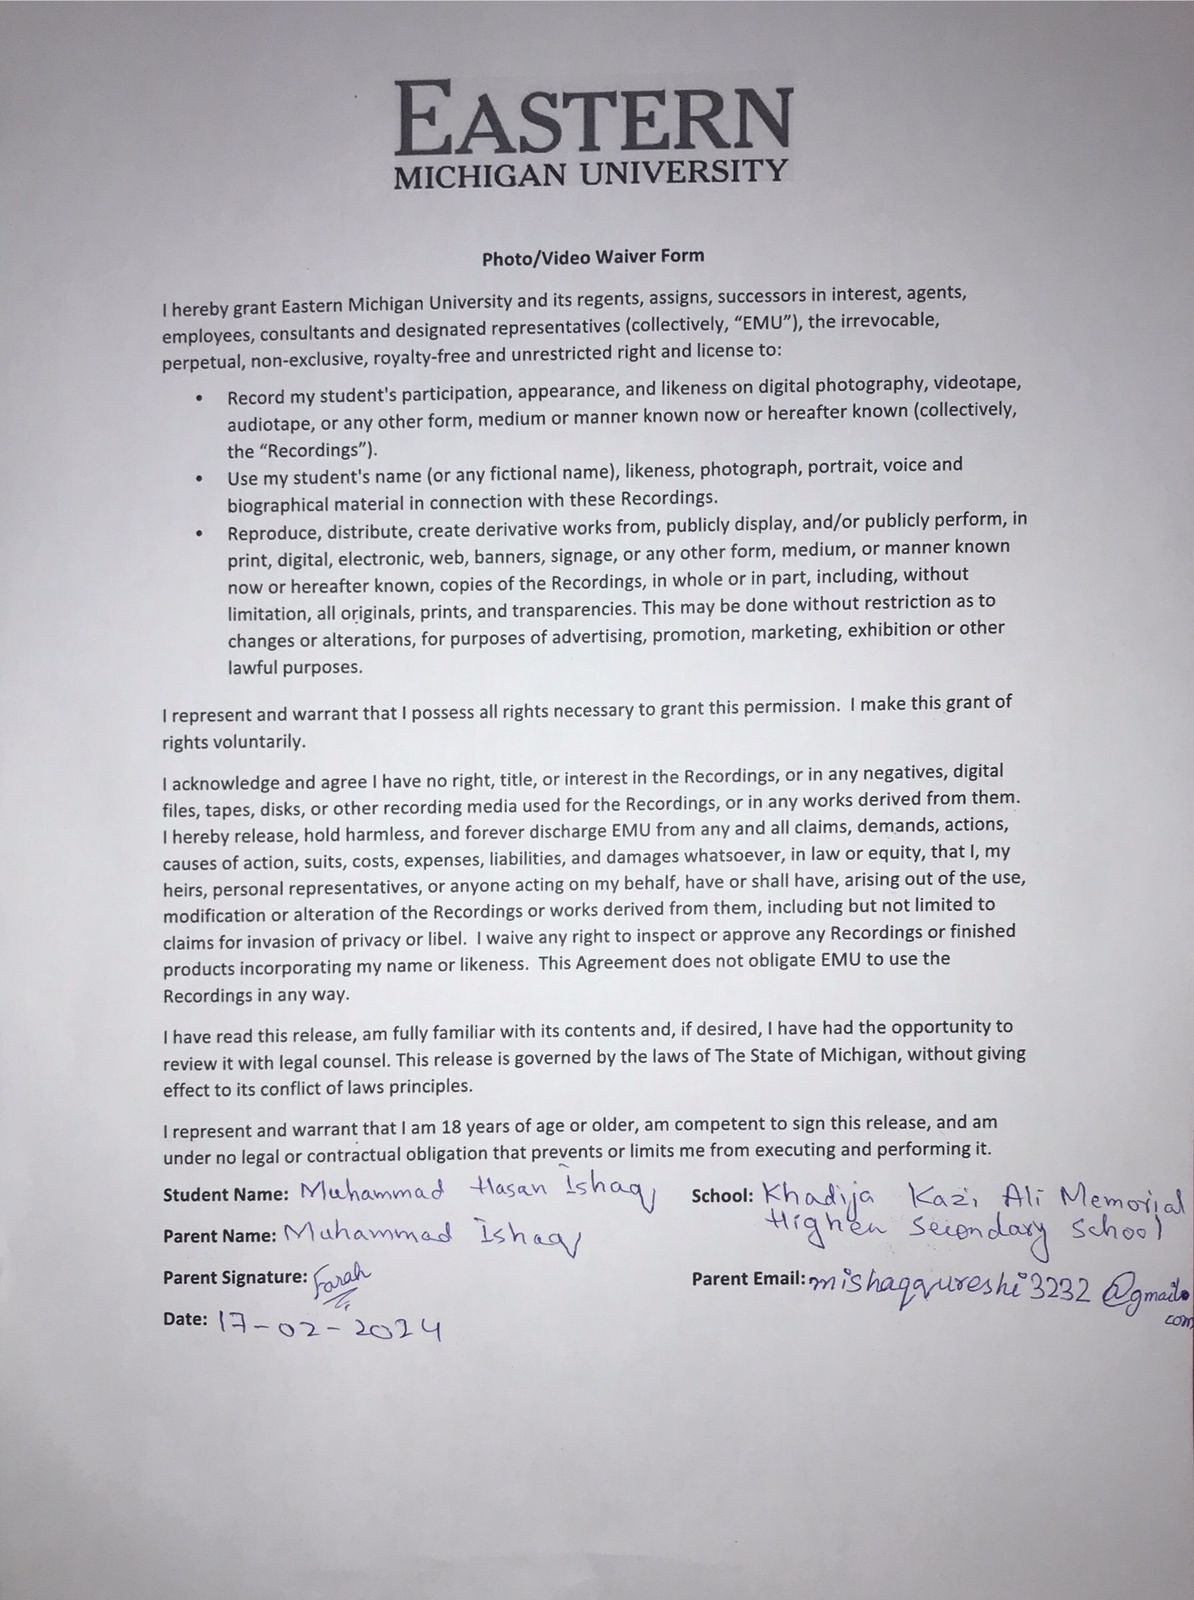 EASTERN
MICHIGAN UNIVERSITY
Photo/Video Waiver Form
I hereby grant Eastern Michigan University and its regents, assigns, successors in interest, agents,
employees, consultants and designated representatives (collectively, “EMU”), the irrevocable,
perpetual, non-exclusive, royalty-free and unrestricted right and license to:
• Record my student's participation, appearance, and likeness on digital photography, videotape,
audiotape, or any other form, medium or manner known now or hereafter known (collectively,
the “Recordings”).
• Use my student's name (or any fictional name), likeness, photograph, portrait, voice and
biographical material in connection with these Recordings.
• Reproduce, distribute, create derivative works from, publicly display, and/or publicly perform, in
print, digital, electronic, web, banners, signage, or any other form, medium, or manner known
now or hereafter known, copies of the Recordings, in whole or in part, including, without
limitation, all originals, prints, and transparencies. This may be done without restriction as to
changes or alterations, for purposes of advertising, promotion, marketing, exhibition or other
lawful purposes.
I represent and warrant that I possess all rights necessary to grant this permission. I make this grant of
rights voluntarily.
I acknowledge and agree I have no right, title, or interest in the Recordings, or in any negatives, digital
files, tapes, disks, or other recording media used for the Recordings, or in any works derived from them.
I hereby release, hold harmless, and forever discharge EMU from any and all claims, demands, actions,
causes of action, suits, costs, expenses, liabilities, and damages whatsoever, in law or equity, that I, my
heirs, personal representatives, or anyone acting on my behalf, have or shall have, arising out of the use,
modification or alteration of the Recordings or works derived from them, including but not limited to
claims for invasion of privacy or libel. I waive any right to inspect or approve any Recordings or finished
products incorporating my name or likeness. This Agreement does not obligate EMU to use the
Recordings in any way.
I have read this release, am fully familiar with its contents and, if desired, I have had the opportunity to
review it with legal counsel. This release is governed by the laws of The State of Michigan, without giving
effect to its conflict of laws principles.
I represent and warrant that I am 18 years of age or older, am competent to sign this release, and am
under no legal or contractual obligation that prevents or limits me from executing and performing it.
Student Name: Muhammad Hasan Ishaq School: Khadija Kazi Ali Memorial
Higher Secondary School
Parent Name: Muhammad Ishaq
Parent Signature: Farah Parent Email: mishaqqureshi3232@gmail.
com
Date: 17-02-2024